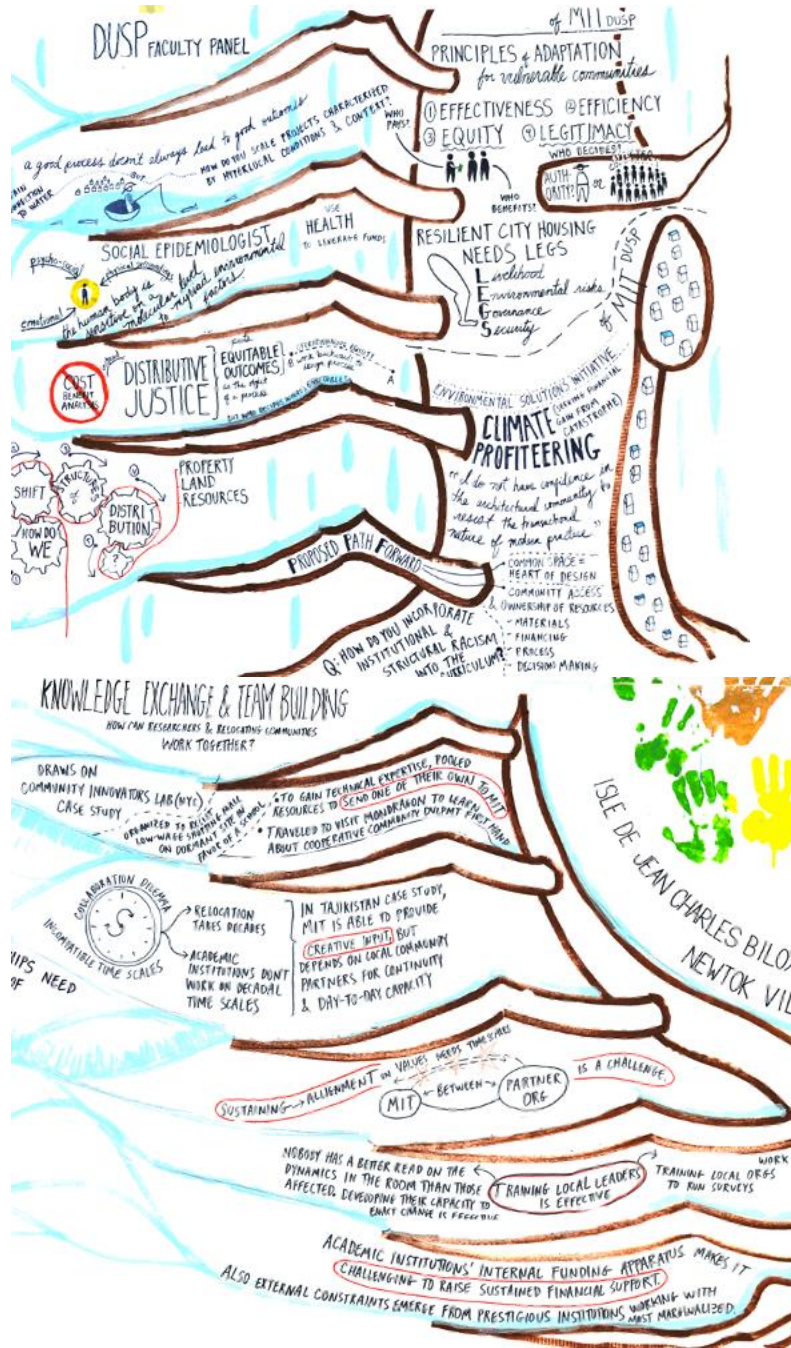 DUSP FACULTY PANEL
of MIT DUSP
PRINCIPLES of ADAPTATION
for vulnerable communities
① EFFECTIVENESS ② EFFICIENCY
③ EQUITY ④ LEGITIMACY
WHO PAYS?
WHO BENEFITS?
WHO DECIDES?
AUTH
ORITY?
or
a good process doesn't always lead to good outcomes
BUT
HOW DO YOU SCALE PROJECTS CHARACTERIZED
BY HYPERLOCAL CONDITIONS & CONTEXT?
TO WATER
SOCIAL EPIDEMIOLOGIST
USE
HEALTH
TO LEVERAGE FUNDS
psycho-social
physical surroundings
emotional
the human body is
sensitive on a
molecular level
to myriad environmental
factors
RESILIENT CITY HOUSING
NEEDS LEGS
Livelihood
Environmental risks
Governance
Security
of MIT DUSP
COST
BENEFIT
ANALYSIS
DISTRIBUTIVE
JUSTICE
EQUITABLE
OUTCOMES
as the object
of a process
work backwards to
design process
A
BUT WHO DECIDES WHAT'S EQUITABLE?
ENVIRONMENTAL SOLUTIONS INITIATIVE
CLIMATE
PROFITEERING
(SEEKING FINANCIAL
GAIN FROM
CATASTROPHE)
"I do not have confidence in
the architectural community to
resist the transactional
nature of modern practice"
SHIFT
STRUCTURES
of
DISTRI
BUTION
HOW DO
WE
?
PROPERTY
LAND
RESOURCES
PROPOSED PATH FORWARD
COMMON SPACE =
HEART OF DESIGN
COMMUNITY ACCESS
& OWNERSHIP OF RESOURCES
- MATERIALS
- FINANCING
- PROCESS
- DECISION MAKING
Q: HOW DO YOU INCORPORATE
INSTITUTIONAL &
STRUCTURAL RACISM
INTO THE
CURRICULUM?
KNOWLEDGE EXCHANGE & TEAM BUILDING
HOW CAN RESEARCHERS & RELOCATING COMMUNITIES
WORK TOGETHER?
DRAWS ON
COMMUNITY INNOVATORS LAB (NYC)
CASE STUDY
ORGANIZED TO RESIST
LOW-WAGE SHOPPING MALL
ON DORMANT SITE IN
FAVOR OF A SCHOOL
• TO GAIN TECHNICAL EXPERTISE, POOLED
RESOURCES TO SEND ONE OF THEIR OWN TO MIT
• TRAVELED TO VISIT MONDRAGON TO LEARN
ABOUT COOPERATIVE COMMUNITY DVLPMT FIRST HAND
ISLE DE JEAN CHARLES BILOX
NEWTOK VIL
COLLABORATION DILEMMA
INCOMPATIBLE TIME SCALES
RELOCATION
TAKES DECADES
ACADEMIC
INSTITUTIONS DON'T
WORK ON DECADAL
TIME SCALES
IN TAJIKISTAN CASE STUDY,
MIT IS ABLE TO PROVIDE
CREATIVE INPUT, BUT
DEPENDS ON LOCAL COMMUNITY
PARTNERS FOR CONTINUITY
& DAY-TO-DAY CAPACITY
HIPS NEED
OF
SUSTAINING → ALLIGNMENT ON VALUES, NEEDS, TIME SCALES
MIT
BETWEEN
PARTNER
ORG
IS A CHALLENGE.
NOBODY HAS A BETTER READ ON THE
DYNAMICS IN THE ROOM THAN THOSE
AFFECTED. DEVELOPING THEIR CAPACITY TO
ENACT CHANGE IS EFFECTIVE
TRAINING LOCAL LEADERS
IS EFFECTIVE
WORK
TRAINING LOCAL ORGS
TO RUN SURVEYS
ACADEMIC INSTITUTIONS' INTERNAL FUNDING APPARATUS MAKES IT
CHALLENGING TO RAISE SUSTAINED FINANCIAL SUPPORT.
ALSO EXTERNAL CONSTRAINTS EMERGE FROM PRESTIGIOUS INSTITUTIONS WORKING WITH
MOST MARGINALIZED.